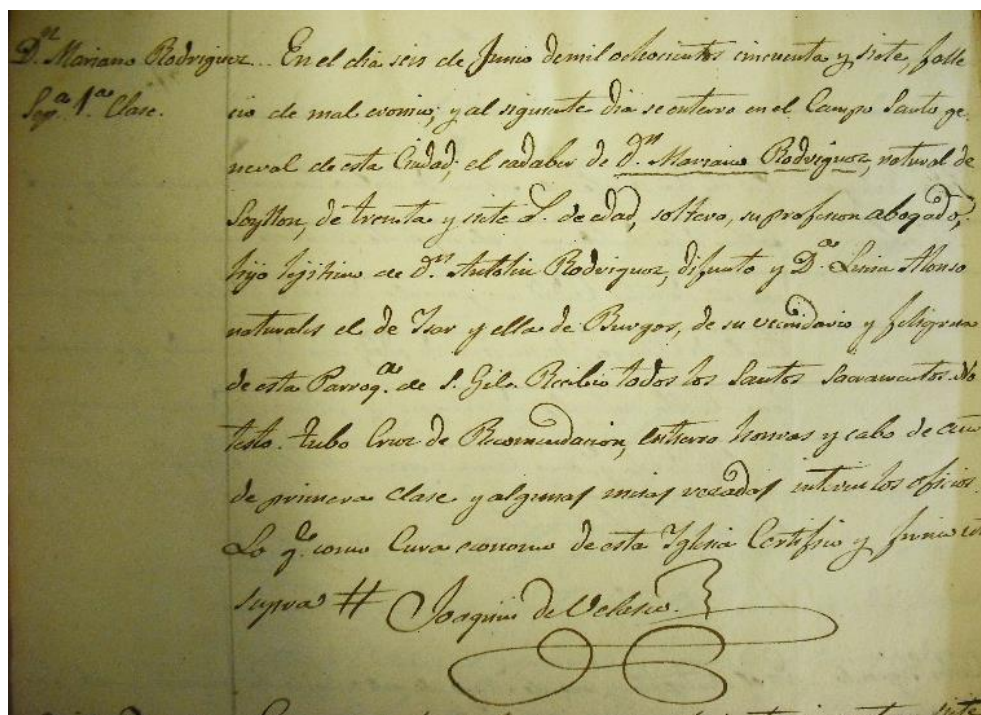 Dn. Mariano Rodriguez... En el dia seis de Junio de mil ochocientos cincuenta y siete, falle
Sepa. 1a. Clase. cio de mal cronico; y al siguiente dia se enterro en el Campo Santo ge-
neral de esta Ciudad, el cadaber de Dn. Mariano Rodriguez, natural de
de treinta y siete de edad, soltero, su profesion abogado,
hijo lejitimo de Dn. Antolin Rodriguez, difunto y Da. Luisa Alonso
naturales el de Isar y ella de Burgos, de su vecindario y feligreses
de esta Parroqa. de S. Gil. Recibio todos los Santos Sacramentos. No
testo. Tubo Cruz de Recomendacion, entierro honras y cabo de año
de primera clase y algunas misas rezadas los oficios.
Lo qe. como Cura economo de esta Yglesia Certifico y firmo ut
supra # Joaquin de Velasco.